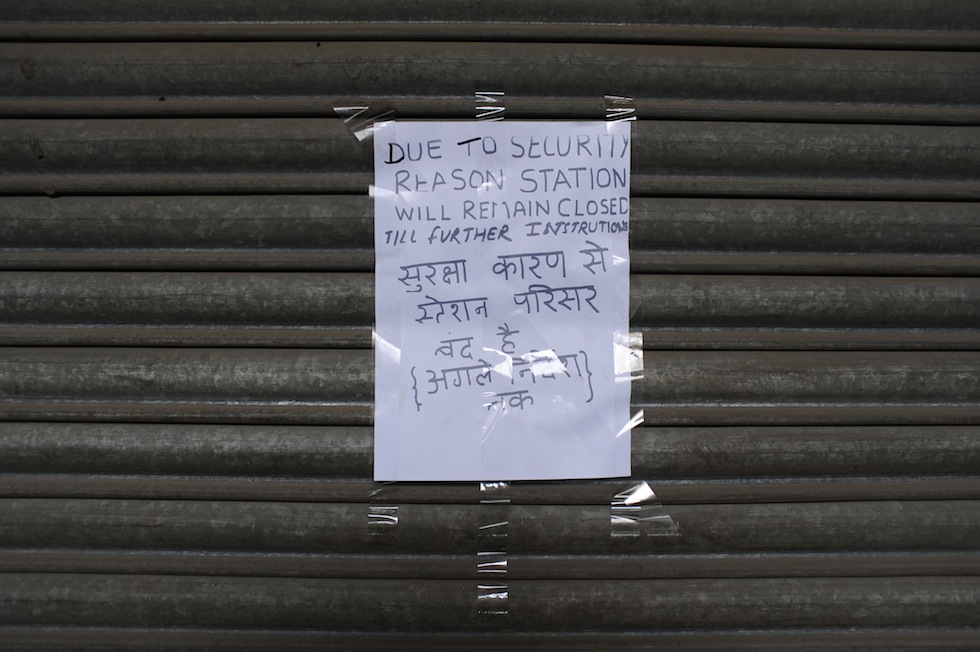 DUE TO SECURITY
REASON STATION
WILL REMAIN CLOSED
TILL FURTHER INSTRUTIONS
सुरक्षा कारण से
स्टेशन परिसर
बंद है
{अगले निर्देश}
तक